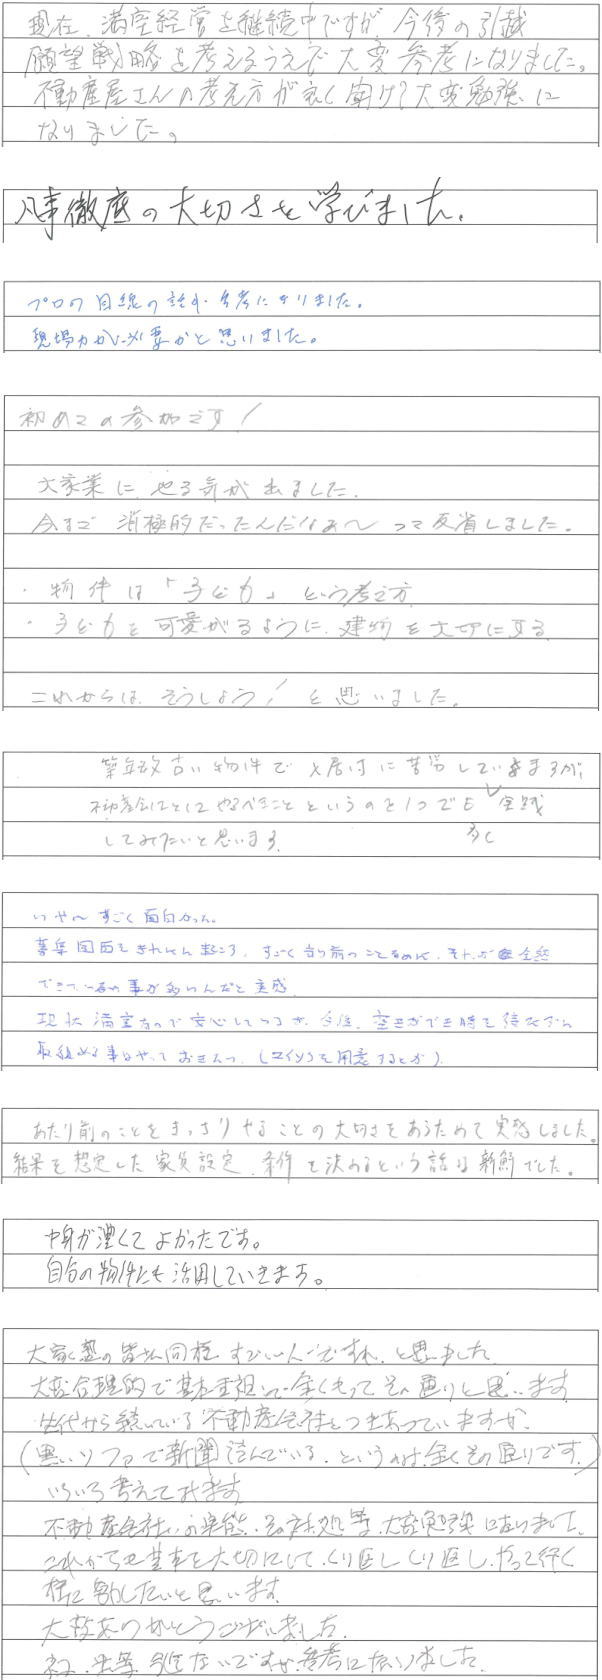 現在、満室経営を継続中ですが今後の引越
願望戦略を考えるうえで大変参考になりました。
不動産屋さんの考え方が良く聞けて大変勉強に
なりました。
凡事徹底の大切さを学びました。
プロの目線の話が参考になりました。
現場力が必要かと思いました。
初めての参加です!
大家業に、やる気が出ました。
今まで消極的だったんだなぁ〜って反省しました。
・物件は「子ども」という考え方
・子どもを可愛がるように、建物を大切にする
これからは、そうしよう!と思いました。
築年数古い物件で入居付に苦労していますが、
不動産会社にやるべきことというのを1つでも多く実践
してみたいと思います。
いや〜すごく面白かった。
募集図面をきれいに すごく当り前のことなのに、それが全然
できていない事が多いんだと実感
現状満室なので安心しているが、今後、空きができる時を待たずに
取り組める事はやっておきたい。
あたり前のことをきっちりやることの大切さをあらためて実感しました。
結果を想定した家賃設定、条件を決めるという話は新鮮でした。
中身が濃くてよかったです。
自分の物件にも活用していきます。
大家塾の皆さん同様すごい人ですね、と思いました。
大変合理的で 全くもってその通りと思います
先代から続いている不動産会社とつきあっていますが、
(黒いソファで新聞読んでいる、というのは、全くその通りです。)
いろいろ考えております
不動産会社の実態、その対処等、大変勉強になりました。
これからも基本を大切にして、くり返しくり返し、やって行く
様に努力したいと思います。
大変ありがとうございました。
参考になりました。